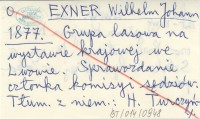 EXNER Wilhelm Johann
1877. Grupa lasowa na
wystawie krajowej we
Lwowie. Sprawozdanie
członka komisyi sędziów.
Tłum. z niem.: H. Turczyń-